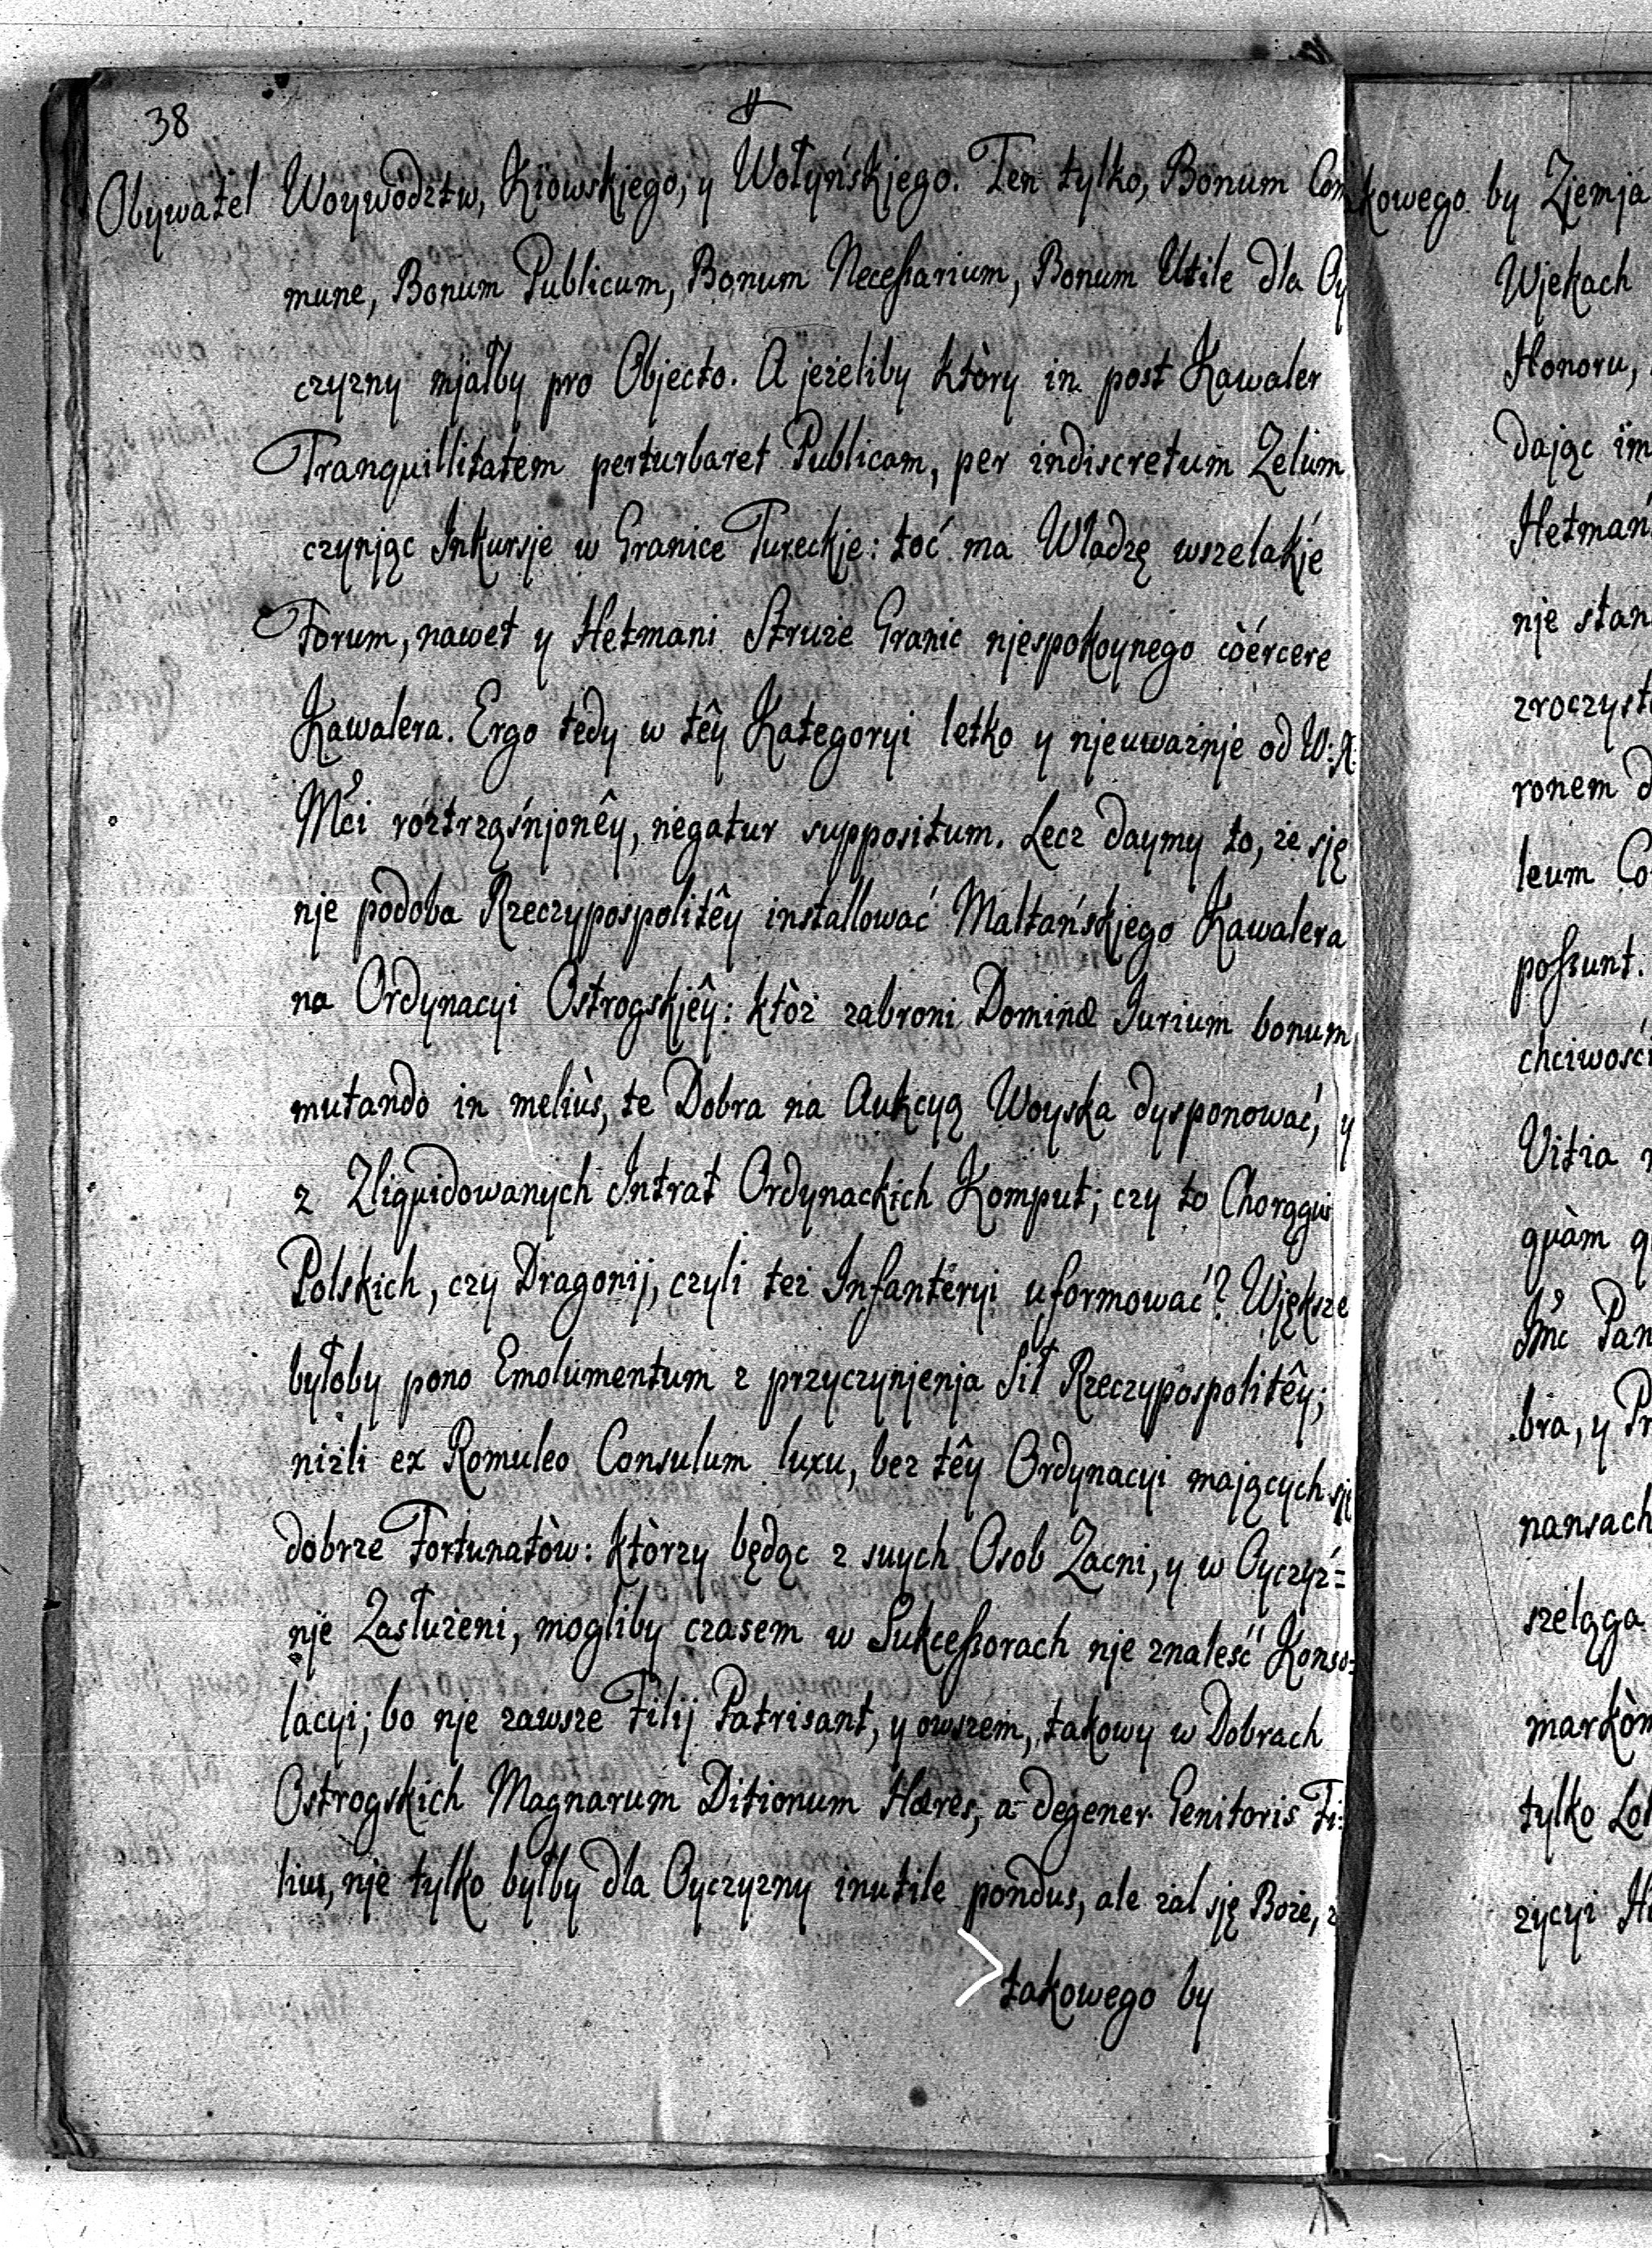 38
Obywatel Woywodztw, Kiowskjego, y Wołyńskjego. Ten tylko, Bonum Com
mune, Bonum Publicum, Bonum Neceſsarium, Bonum Utile dla Oy
czyzny mjałby pro Objecto. A jeżeliby ktòry in post Kawaler
Tranquillitatem perturbaret Publicam, per indiscretum Zelum
czynjąc Inkursje w Granice Tureckje: toć ma Władzę wszelakjé
Forum, nawet y Hetmani Struże Granic njespokoynego coërcere
Kawalera. Ergo tedy w têy Kategoryi letko y njeuważnje od W:X:
Mći roztrząśnjonêy, negatur suppositum. Lecz daymy to, że sję
nje podoba Rzeczypospolitêy installować Maltańskjego Kawalera
na Ordynacyi Ostrogskjêy: ktòż zabroni Dominæ Iurium bonum
mutando in meliùs, te Dobra na Aukcyą Woyska dysponować, y
z Zliquidowanych Intrat Ordynackich Komput; czy to Chorągwi
Polskich, czy Dragonij, czyli też Infanteryi uformować? Wjększe
byłoby pono Emolumentum z przyczynjenja Sił Rzeczypospolitêy;
niżli ex Romuleo Consulum luxu, bez têy Ordynacyi mających sję
dobrze Fortunatòw: ktòrzy będąc z suych Osob Zacni, y w Oyczyź=
nje Zasłużeni, mogliby czasem w Sukceſsorach nje znaleść Konso=
lacyi; bo nje zawsze Filij Patrisant, y owszem, takowy w Dobrach
Ostrogskich Magnarum Ditionum Hæres, a degener Genitoris Fi=
lius, nje tylko byłby dla Oyczyzny inutile pondus, ale żal sję Boże, z
takowego by
kowego by Zjemja
Wjekach
Honoru,
dając im
Hetman
nje stan
zroczyst
ronem d
leum Co
poſsunt.
chciwości
Vitia
quàm q
Jmć Pan
bra, y Pr
nansach
szeląga
markòm
tylko Lo
życyi H